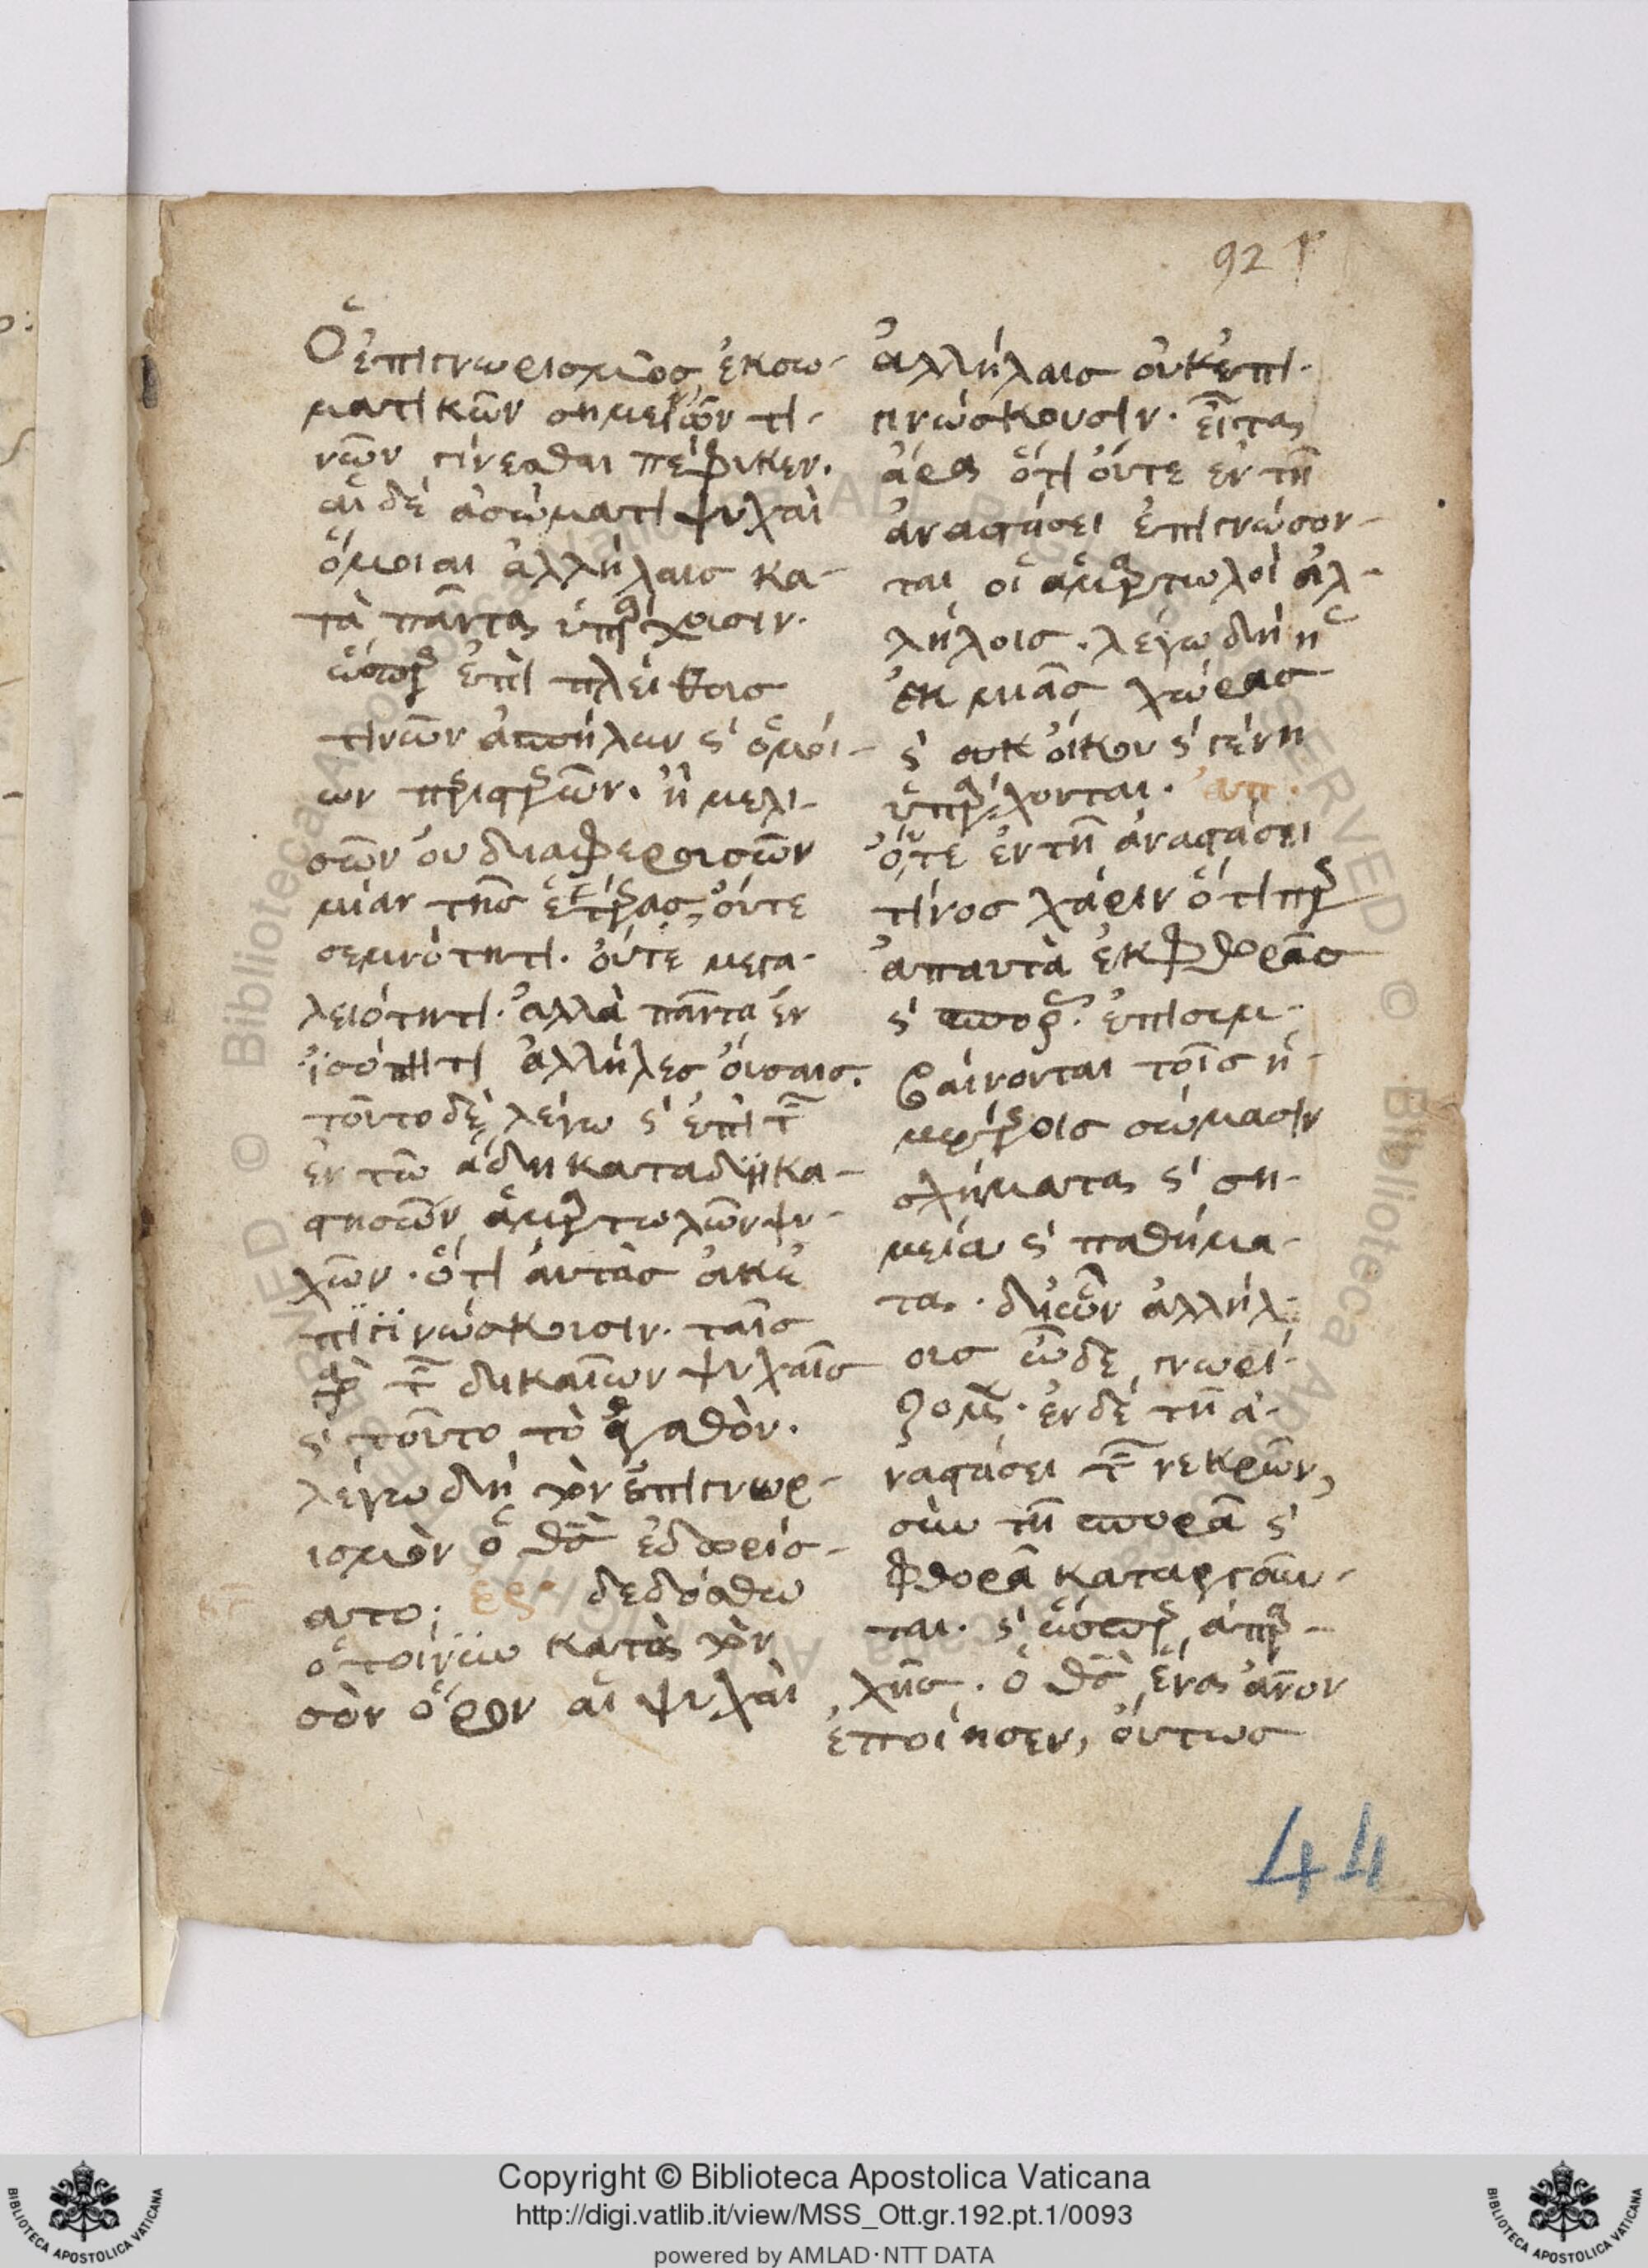 92r
Ὁ ἐπιγνωρισμὸς ἐκ σω-
ματικῶν σημείων τι-
νῶν γίνεσθαι πέφυκεν.
αἱ δὲ ἀσώματι ψυχαὶ
ὅμοιαι ἀλλήλαις κα-
τὰ πάντα ὑπάρχουσιν.
ὥσπερ ἐπὶ πλείθους
τινῶν ὁμοί-
ων περιστερῶν. ἢ μελι-
σῶν οὐ διαφερουσῶν
μίαν τῆς ἑτέρας, οὔτε
σεμνότητι. οὔτε μεγα-
λειότητι. ἀλλὰ πάντα ἐν
ἰσότητι ἀλλήλες οὔσαις.
τοῦτο δὲ λέγω ϛ ἐπὶ τῶν
ἐν τῷ ἅδῃ καταδικα-
στησῶν ἁμαρτωλῶν ψυ-
χῶν. ὅτι αὐτὰς οὐκ ἐ-
πιγινώσκουσιν. ταῖς
γὰρ τῶν δικαίων ψυχαῖς
ϛ τοῦτο τὸ ἀγαθὸν.
λέγω δὴ τὸν ἐπιγνωρ-
ισμὸν ὁ θσ ἐδωρίσ-
ατο; ἐρ δεδόσθω
ὅτοίνυν κατὰ τὸν
σὸν ὅρον αἱ ψυχαὶ
ἀλλήλαις οὐκ ἐπι-
γινώσκουσιν. εἶτα
ἆρα ὅτι οὔτε ἐν τῇ
ἀναστάσει ἐπιγνώσον-
ται οἱ ἁμαρτωλοὶ ἀλ-
λήλοις. λέγω δὴ ἡ
ἐκ μιᾶς χώρας
ϛ οὐκ οἴκου ϛ γένη
ὑπάρχονται. ἀπ.
οὔτε ἐν τῇ ἀναστάσει
τίνος χάριν ὅτι περ
ἅπαντα ἐκ φθορᾶς
ϛ σπορᾶς ἐπισυμ-
βαίνονται τοῖς ἡ-
μετέροις σώμασιν
σχήματα ϛ ση-
μεία ϛ παθήμα-
τα. δι' ὧν ἀλλήλ-
οις ὧδε γνωρί-
ζομεν. ἐν δὲ τῇ ἀ-
ναστάσει τῶν νεκρῶν,
σὺν τῇ σπορᾷ ϛ
φθορᾷ καταργοῦν-
ται. ϛ ὥσπερ ἀπαρ-
χῆς. ὁ θσ ἕνα ἄνον
ἐποίησεν, οὕτως
44
Copyright © Biblioteca Apostolica Vaticana
http://digi.vatlib.it/view/MSS_Ott.gr.192.pt.1/0093
powered by AMLAD·NTT DATA
BIBLIOTECA APOSTOLICA VATICANA
BIBLIOTECA APOSTOLICA VATICANA